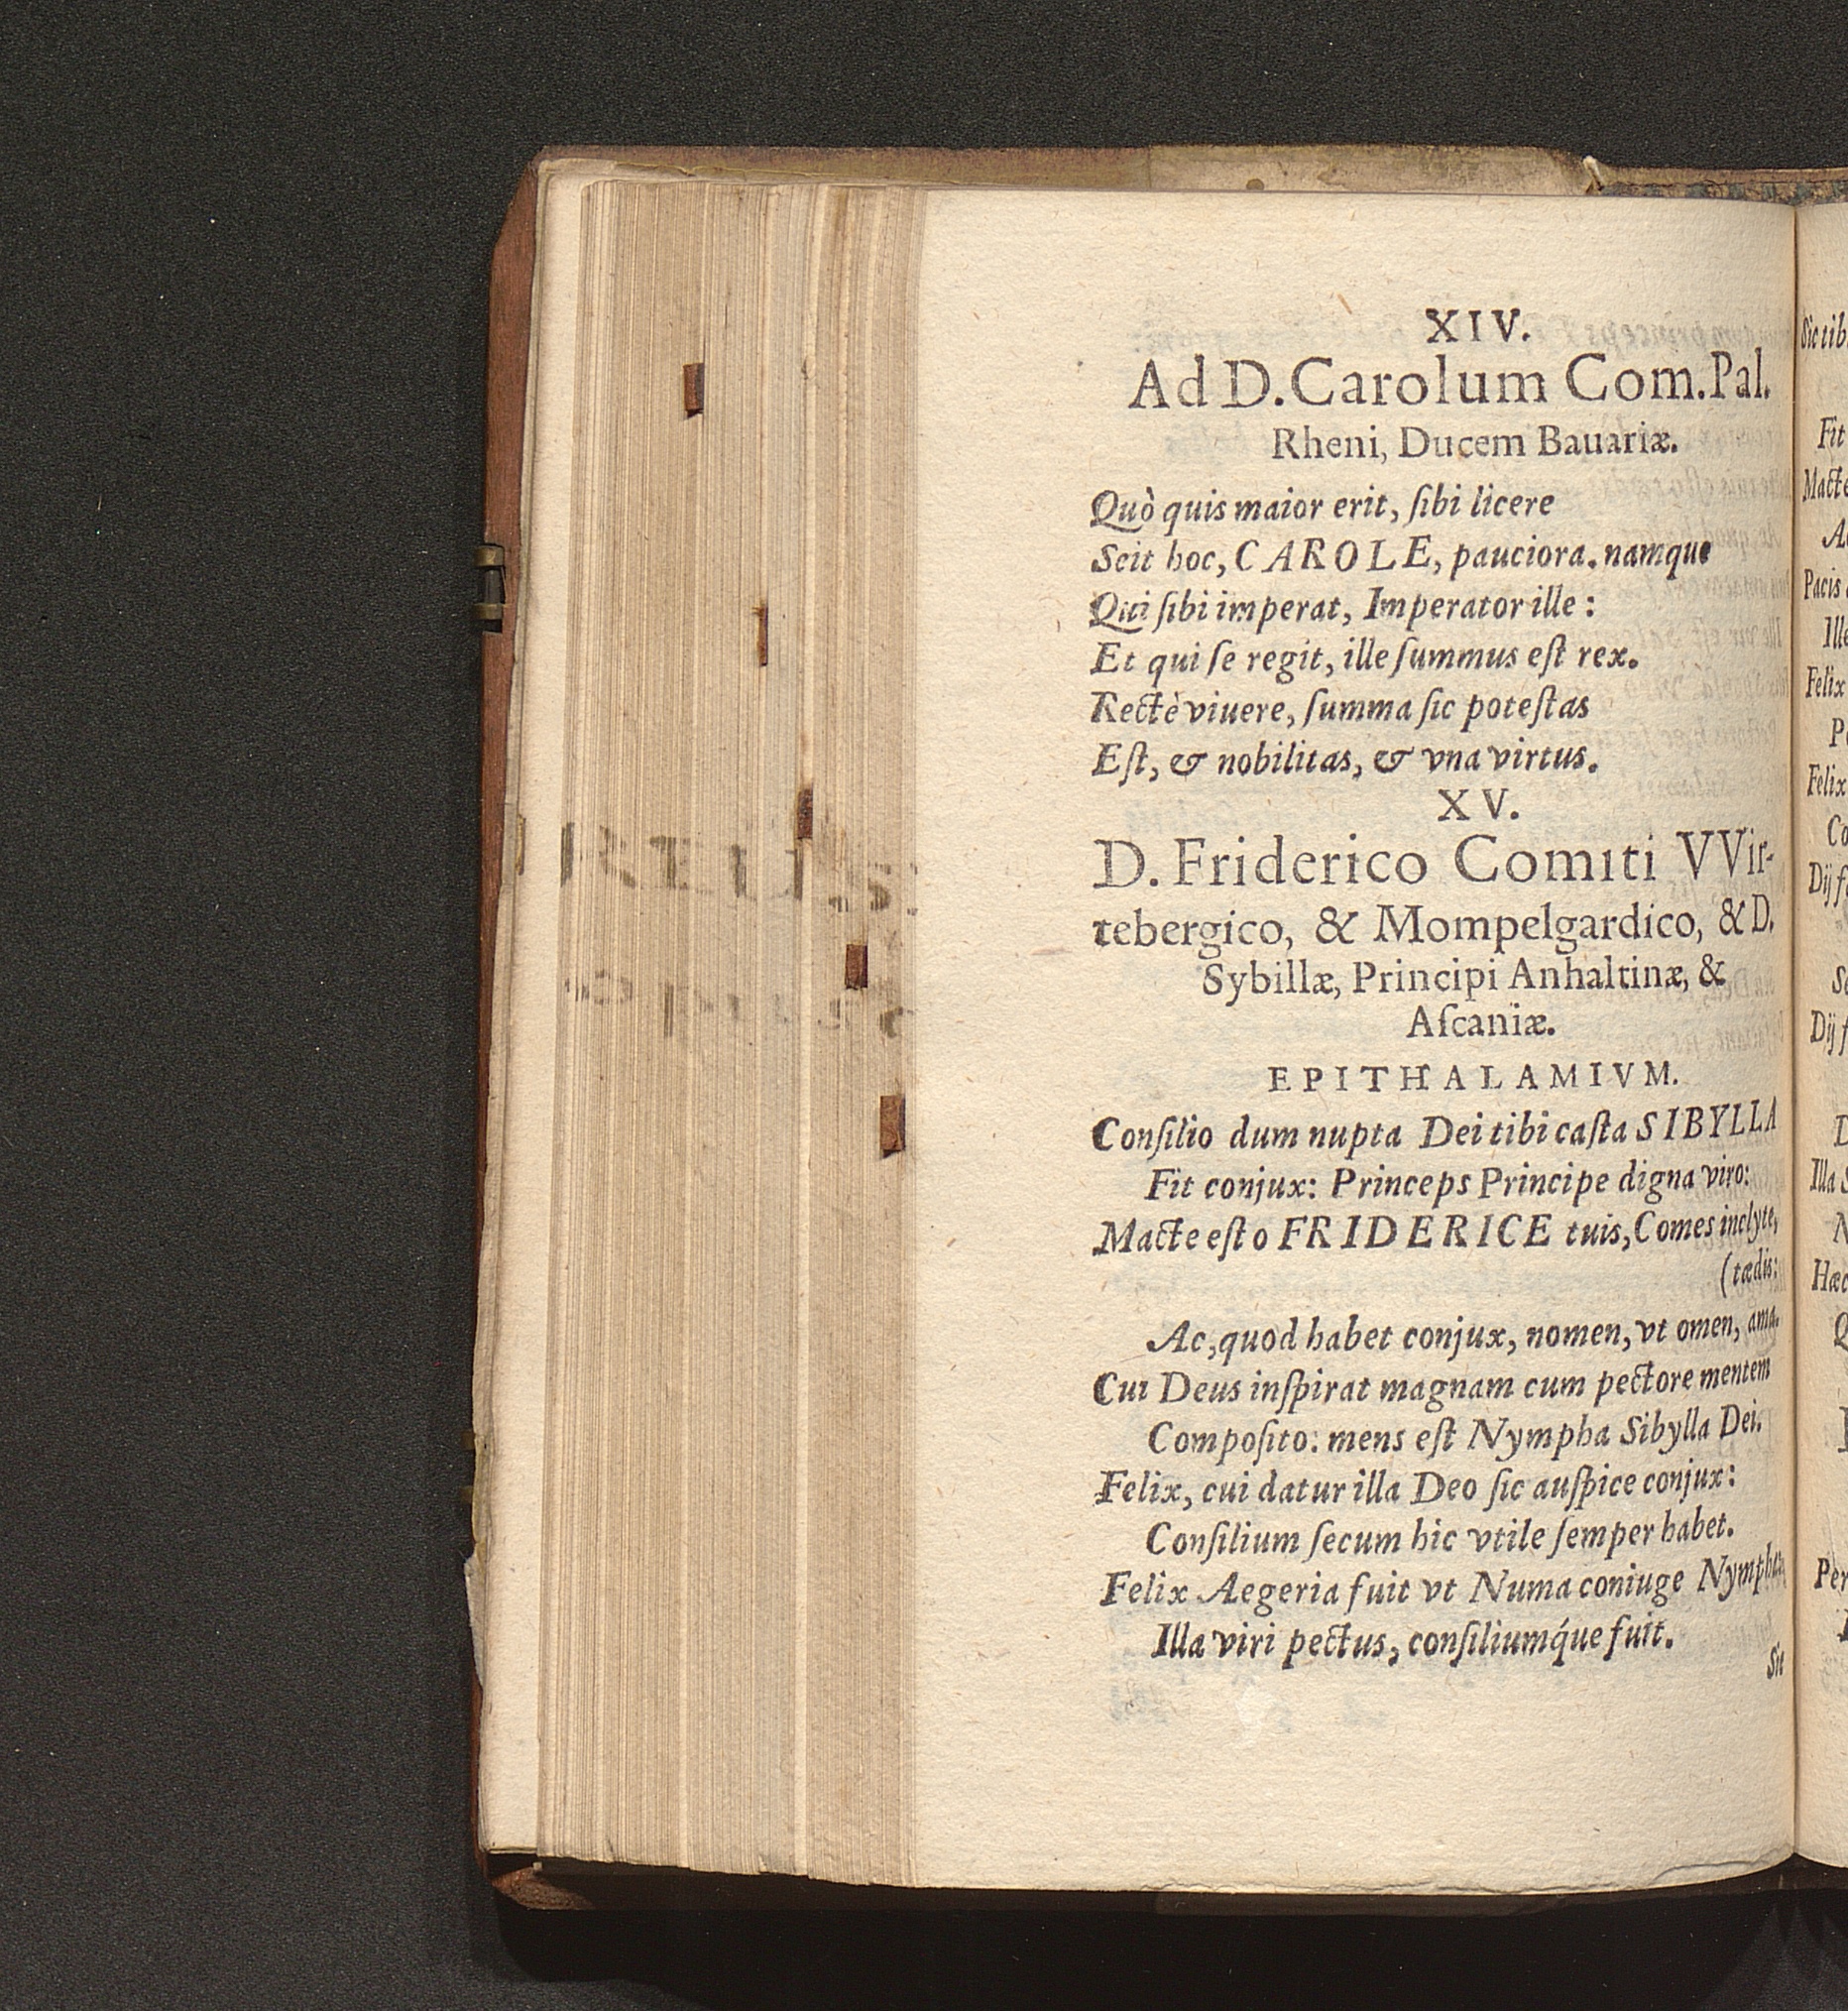 XIV.
Ad D. Carolum Com. Pal.
Rheni, Ducem Bauariæ.
Quò quis maior erit, ſibi licere
Seit hoc, CAROLE, pauciora. namque
Qui ſibi imperat, Imperator ille:
Et qui ſe regit, ille ſummus eſt rex.
Rectè viuere, ſumma ſic poteſtas
Eſt, & nobilitas, & vna virtus.
XV.
D. Friderico Comiti VVir-
tebergico, & Mompelgardico, & D.
Sybillæ, Principi Anhaltinæ, &
Aſcaniæ.
EPITHALAMIVM.
Conſilio dum nupta Dei tibi caſta SIBYLLA
Fit conjux: Princeps Principe digna viro:
Macte eſto FRIDERICE tuis, Comes inclyte,
(tædis:
Ac, quod habet conjux, nomen, vt omen, ama.
Cui Deus inſpirat magnam cum pectore mentem
Compoſito: mens eſt Nympha Sibylla Dei.
Felix, cui datur illa Deo ſic auſpice conjux:
Conſilium ſecum hic vtile ſemper habet.
Felix Aegeria fuit vt Numa coniuge Nympha,
Illa viri pectus, conſiliumq́ue fuit.
Sic
Sic tib
Fit
Macte
Pacis
Ille
Felix
Felix
Co
Dij
Se
Dij f
Illa S
Hæc
Per